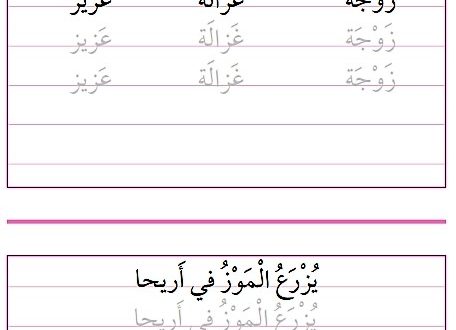 زوجة غزالة عزيز
زَوْجَة غَزالَة عَزيز
زَوْجَة غَزالَة عَزيز
يُزْرَعُ الْمَوْزُ في أَريحا
يُزْرَعُ الْمَوْزُ في أَريحا